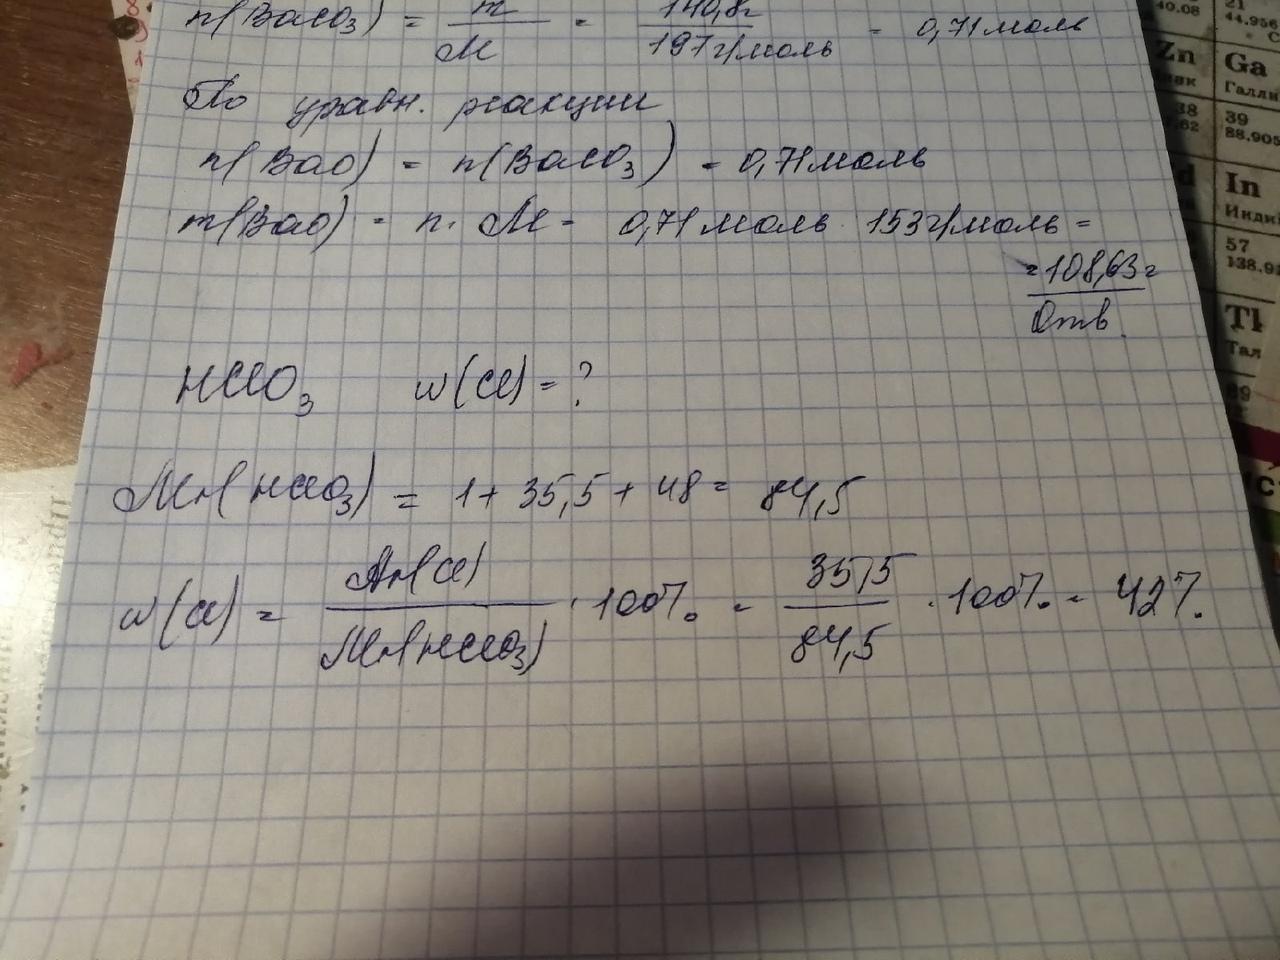 n(BaCO3) = m/M = 140,8г/197г/моль = 0,71моль
По уравн. реакции
n(BaO) = n(BaCO3) = 0,71моль
m(BaO) = n · M = 0,71моль · 153г/моль =
= 108,63г
Отв.
HClO3 w(Cl) = ?
Mr(HClO3) = 1 + 35,5 + 48 = 84,5
w(Cl) = Ar(Cl)/Mr(HClO3) · 100% = 35,5/84,5 · 100% = 42%
40.08
21
44.956
Zn
Ga
Галли
38
39
88.905
In
Инди
57
138.9
Tl
Тал